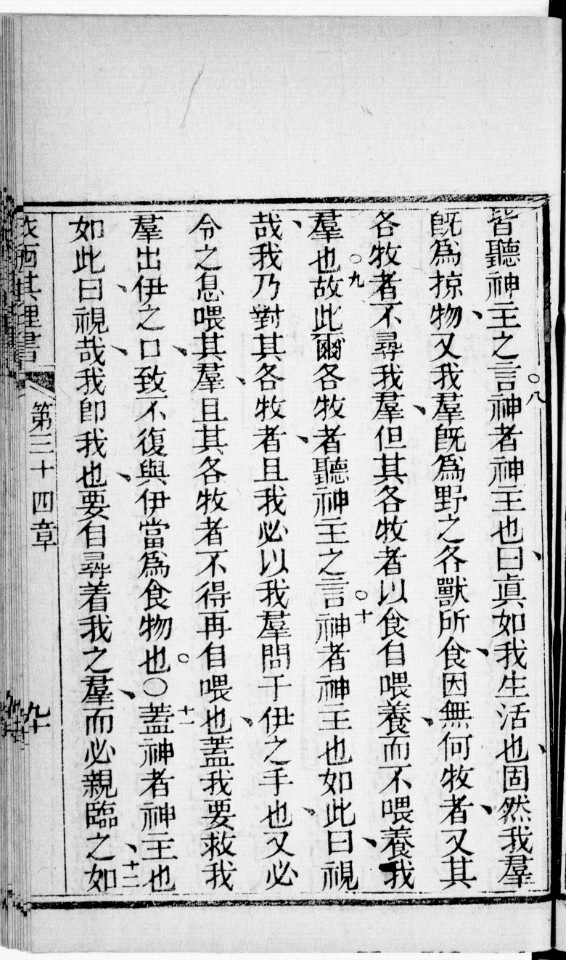 皆聽神主之言○八神者神主也曰眞如我生活也固然我羣
旣爲掠物又我羣旣爲野之各獸所食因無何牧者又其
各牧者不尋我羣但其各牧者以食自喂養而不喂養我
羣也○九故此爾各牧者聽神主之言○十神者神主也如此曰視
哉我乃對其各牧者且我必以我羣問于伊之手也又必
令之息喂其羣且其各牧者不得再自喂也蓋我要救我
羣出伊之口致不復與伊當爲食物也○十一蓋神者神主也
如此曰視哉我卽我也要自尋着我之羣而必親臨之十二如
依西其理書 第三十四章 九十